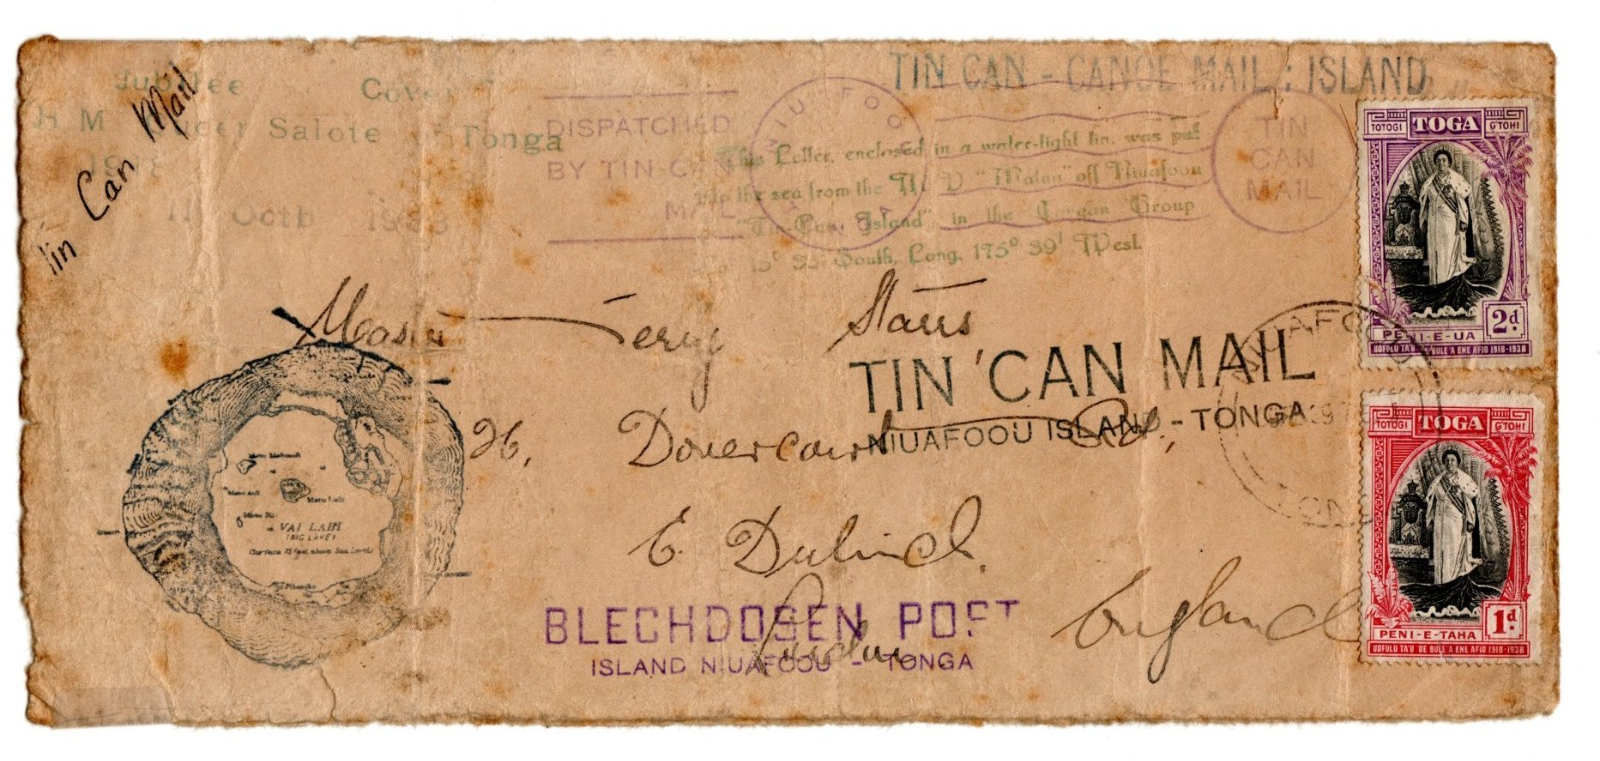 Tin Can Mail
Jubilee Cover
H M Queen Salote of Tonga
1918
11 Octb 1938
DISPATCHED
BY TIN-CAN
MAIL
NIUAFOOU
TIN CAN - CANOE MAIL : ISLAND
TIN
CAN
MAIL
This Letter, enclosed in a water-tight tin, was put
into the sea from the M V "Matua" off Niuafoou
"Tin-Can Island" in the Tongan Group
15° 35' South, Long. 175° 39' West.
TOTOGI TOGA G'TOHI
2d
PENI-E-UA
UOFULU TA'U 'OE BULE A ENE AFIO 1918-1938
TOTOGI TOGA G'TOHI
1d
PENI-E-TAHA
UOFULU TA'U 'OE BULE A ENE AFIO 1918-1938
NIUAFOOU
TONGA
Master Terry
26, Dovercourt Rd.,
E. Dulwich.
London
England
TIN 'CAN MAIL
NIUAFOOU ISLAND - TONGA
BLECHDOSEN POST
ISLAND NIUAFOOU - TONGA
Motu Molimoli
Motu Lahi
VAI LAHI
(BIG LAKE)
(Surface 75 feet above Sea Level)